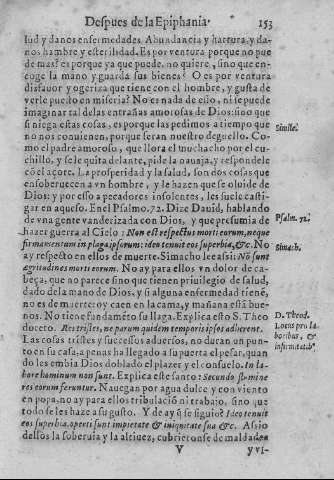 Despues de la Epiphania. 153
lud y danos enfermedades. Abundancia y hartura, y da-
nos hambre y esterilidad. Es por ventura porque no pue
de mas? es porque ya que puede, no quiere, sino que en-
coge la mano y guarda sus bienes? O es por ventura
disfauor y ogeriza que tiene con el hombre, y gusta de
verle puesto en miseria? No es nada de esso, ni se puede
imaginar tal de las entrañas amorosas de Dios: sino que
si niega estas cosas, es porque las pedimos a tiempo que
no nos conuienen, porque seran nuestro deguello. Co-
Simile.
mo el padre amoroso, que llora el muchacho por el cu-
chillo, y se le quita delante, pide la nauaja, y respondele
cõ el açote. La prosperidad y la salud, son dos cosas que
ensoberuecen a vn hombre, y le hazen que se oluide de
Dios: y por esso a pecadores insolentes, les suele casti-
gar en aquesso. En el Psalmo. 72. Dize Dauid, hablando
de vna gente vanderizada con Dios, y que presumia de
Psalm. 72.
hazer guerra al Cielo: Non est respectus morti eorum, neque
firmamentum in plaga ipsorum: ideo tenuit eos superbia, &c. No
ay respecto en ellos de muerte. Simacho lee assi: Nõ sunt
Simach.
agritudines morti eorum. No ay para ellos vn dolor de ca-
beça, que no parece sino que tienen priuilegio de salud,
dado de la mano de Dios, y si alguna enfermedad tiene,
no es de muerte: oy caen en la cama, y mañana està bue-
nos. No tiene fundamẽto su llaga. Explica esto S. Theo
D. Theod.
doreto. Res tristes, ne parum quidem temporis ipsos adherent.
Locus pro la-
Las cosas tristes y successos aduersos, no duran vn pun-
boribus, &
to en su casa, a penas ha llegado a su puerta el pesar, quan
infirmitatib.
do les embia Dios doblado el plazer y el consuelo. In la-
bore hominum non sunt. Explica este santo: Secundo flumine
res eorum feruntur. Nauegan por agua dulce y con viento
en popa, no ay para ellos tribulaciõ ni trabajo, sino que
todo se les haze a su gusto. Y de ay q̃ se siguio? Ideo tenuit
eos superbia, operti sunt impietate & iniquitate sua &c. Assio
dessos la soberuia y la altiuez, cubrieronse de maldad en
V yvi-